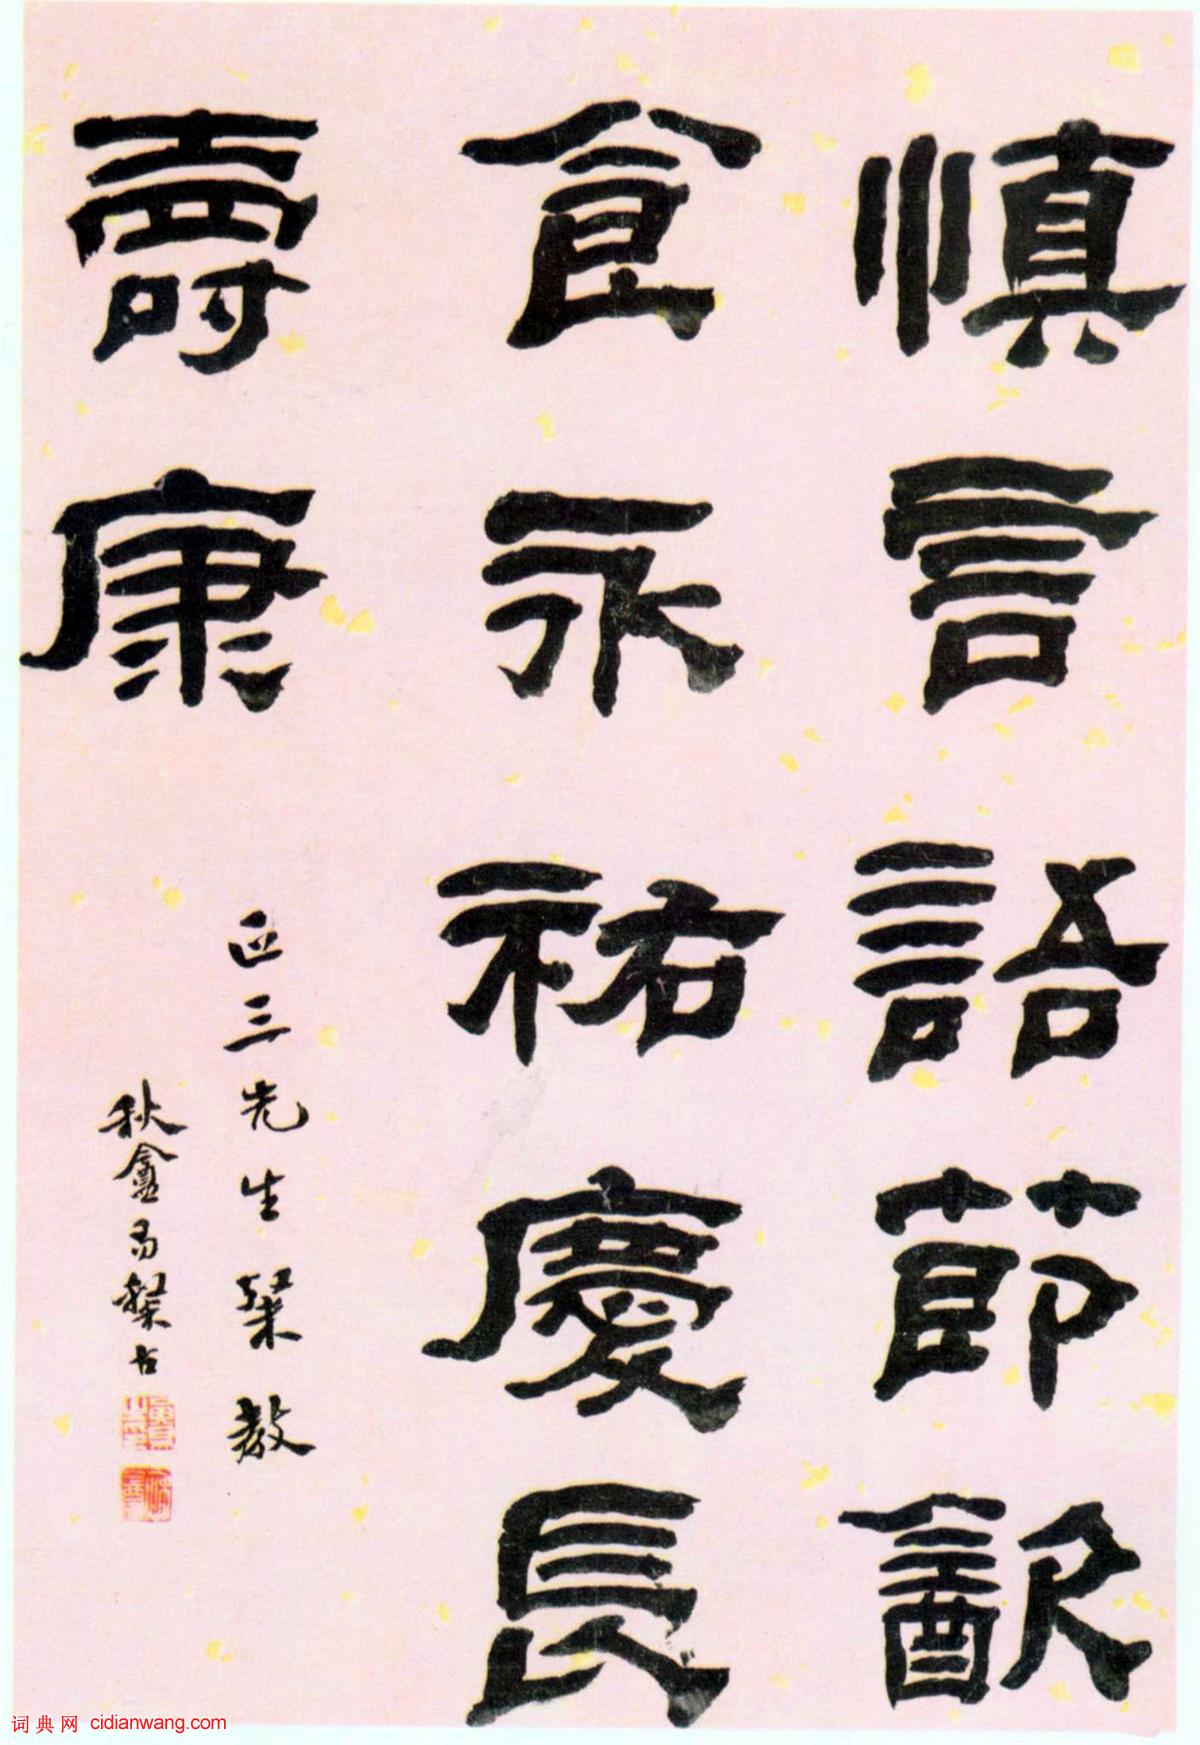 慎言語節㱃
食永祐慶長
壽康
匹三先生榘教
秋盦易榘書
词典网 cidianwang.com